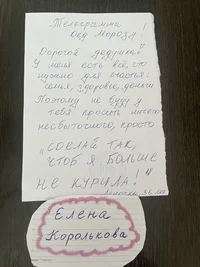 Телеграмма
Дед Мороз!
Дорогой дедушка!
У меня есть всё, что
нужно для счастья:
семья, здоровье, деньги
Поэтому не буду я
тебя просить ничего
несбыточного, просто
„СДЕЛАЙ ТАК,
ЧТОБ Я БОЛЬШЕ
НЕ КУРИЛА!"
Елена
Королькова